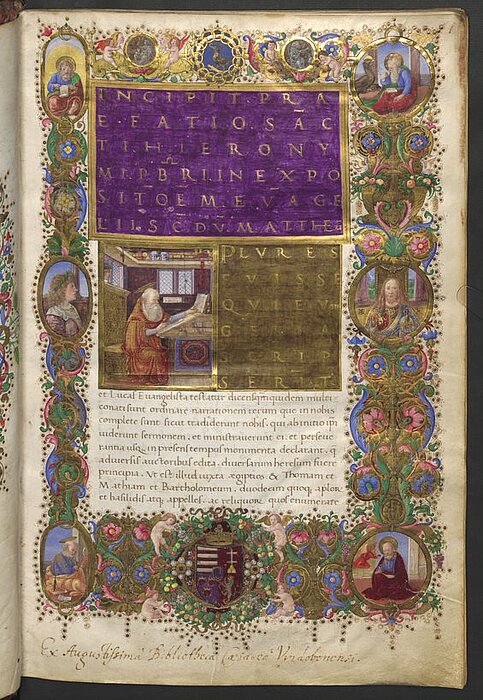 INCIPIT·PRA
E·FATIO·SĀC
TI·HIERONY
MI·PBRI·IN EXPO
SITOEM EVAGE
LII·SC·DV·MATHE
PLVRES
SCRIP
et Lucas Evangelista testatur dicens quidem multi
conati sunt ordinare narrationem rerum que in nobis
complete sunt sicut tradiderunt nobis. qui ab initio ipi
uiderunt sermonem. et ministrauerunt ei. et perseue
rantia usq in presens tempus monumenta declarant. q
a diuersis auctoribus edita. diuersarum heresum fuere
principia. Vt est illud iuxta ægiptios & Thomam et
Mathiam et Bartholomeum. duodecim quoq. aplor
et basilidis atq. appelles. ac reliquor quos enumerare
Ex Augustissima Bibliotheca Cæsarea Vindobonensi.